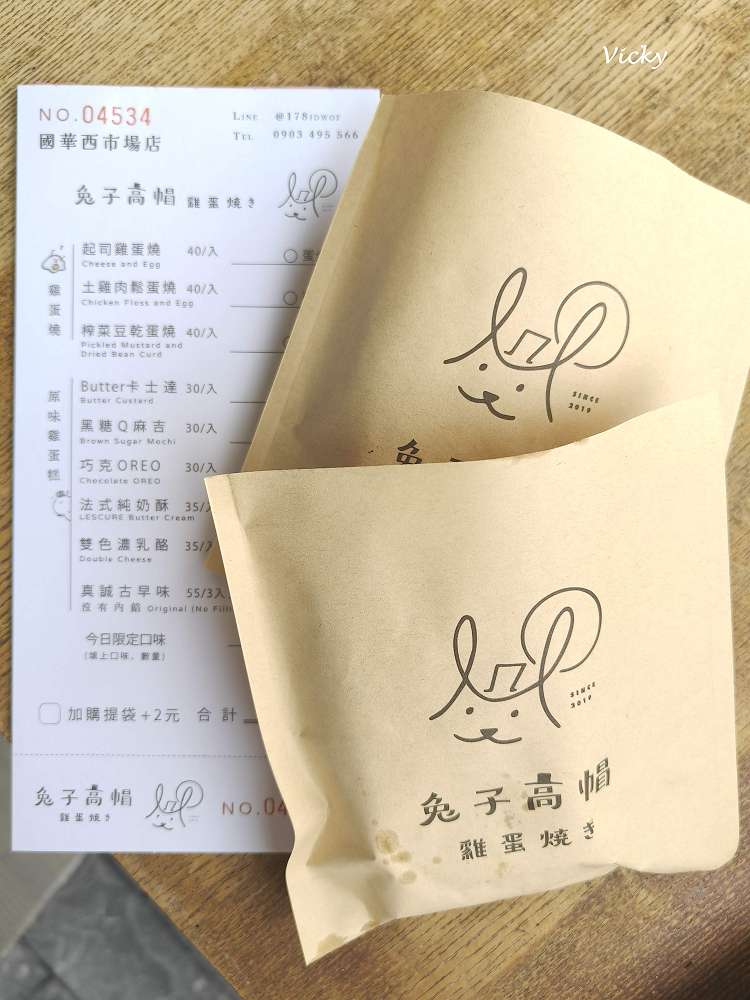 Vicky
NO.04534
LINE @178IDWOT
國華西市場店
TEL 0903 495 566
兔子高帽 雞蛋燒き
雞蛋燒
起司雞蛋燒 40/入
Cheese and Egg
土雞肉鬆蛋燒 40/入
Chicken Floss and Egg
榨菜豆乾蛋燒 40/入
Pickled Mustard and
Dried Bean Curd
原味雞蛋糕
Butter卡士達 30/入
Butter Custard
黑糖Q麻吉 30/入
Brown Sugar Mochi
巧克OREO 30/入
Chocolate OREO
法式純奶酥 35/入
LESCURE Butter Cream
雙色濃乳酪 35/
Double Cheese
真誠古早味 55/3入
沒有內餡 Original (No Filli
今日限定口味
(填上口味、數量)
加購提袋+2元 合計
兔子高帽
雞蛋燒き
NO.04
SINCE
2019
兔
SINCE
2019
兔子高帽
雞蛋燒き